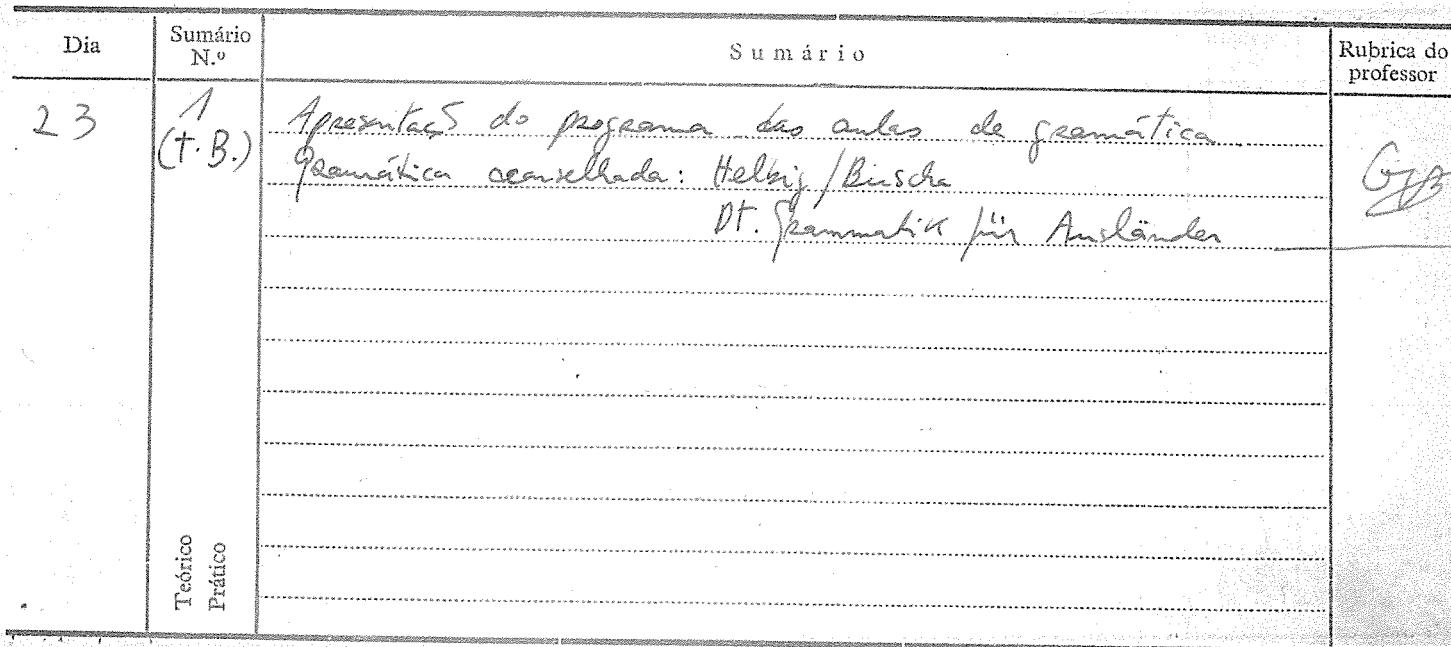 Dia
Sumário N.º
Sumário
Rubrica do professor
23
1 (T.B.)
Apresentaçõ do programa das aulas de gramática
Gramática aconselhada: Helbig/Buscha
Dt. Grammatik für Ausländer
Teórico
Prático